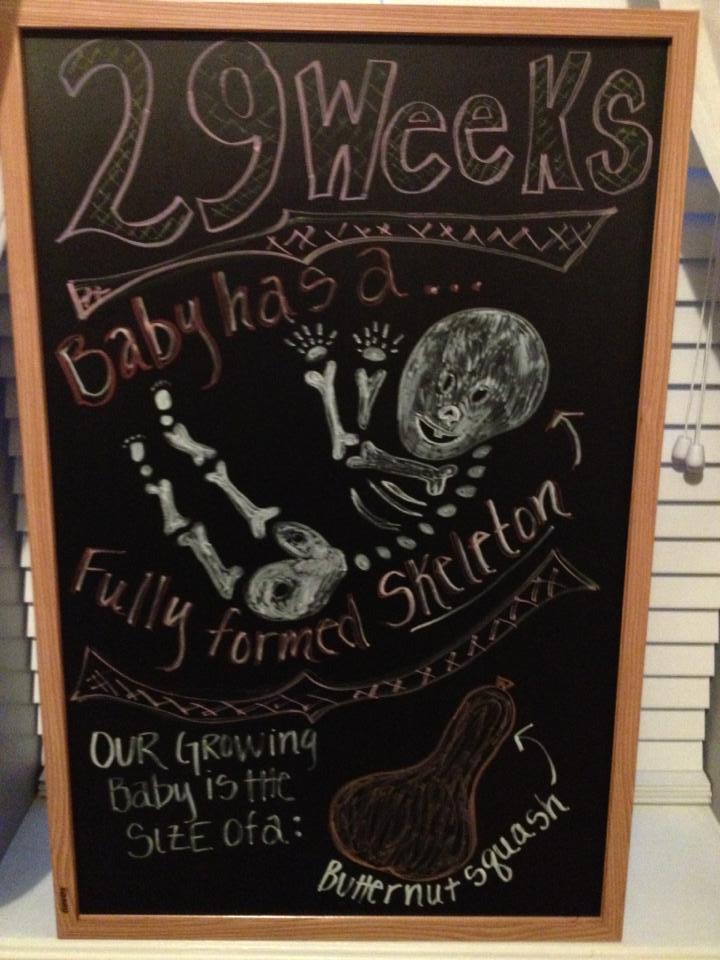 29 Weeks
Baby has a...
Fully formed Skeleton
OUR GROWing
Baby is tHe
SIZE Of a:
Butternut squash